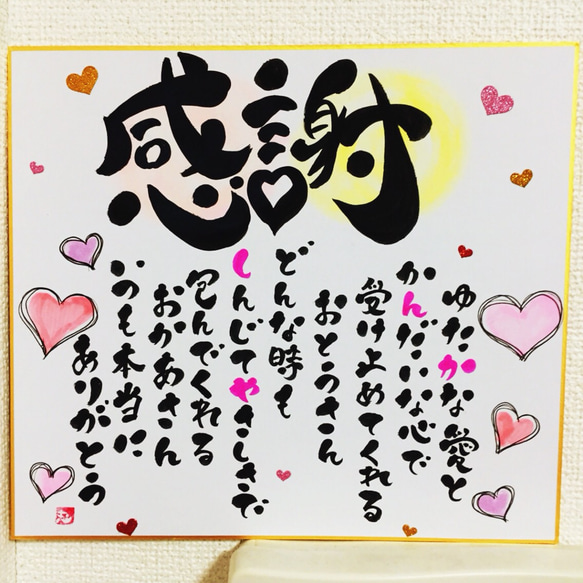 感謝
ゆたかな愛と
かんだいな心で
受け止めてくれる
おとうさん
どんな時も
しんじてやさしさで
包んでくれる
おかあさん
いつも本当に
ありがとう